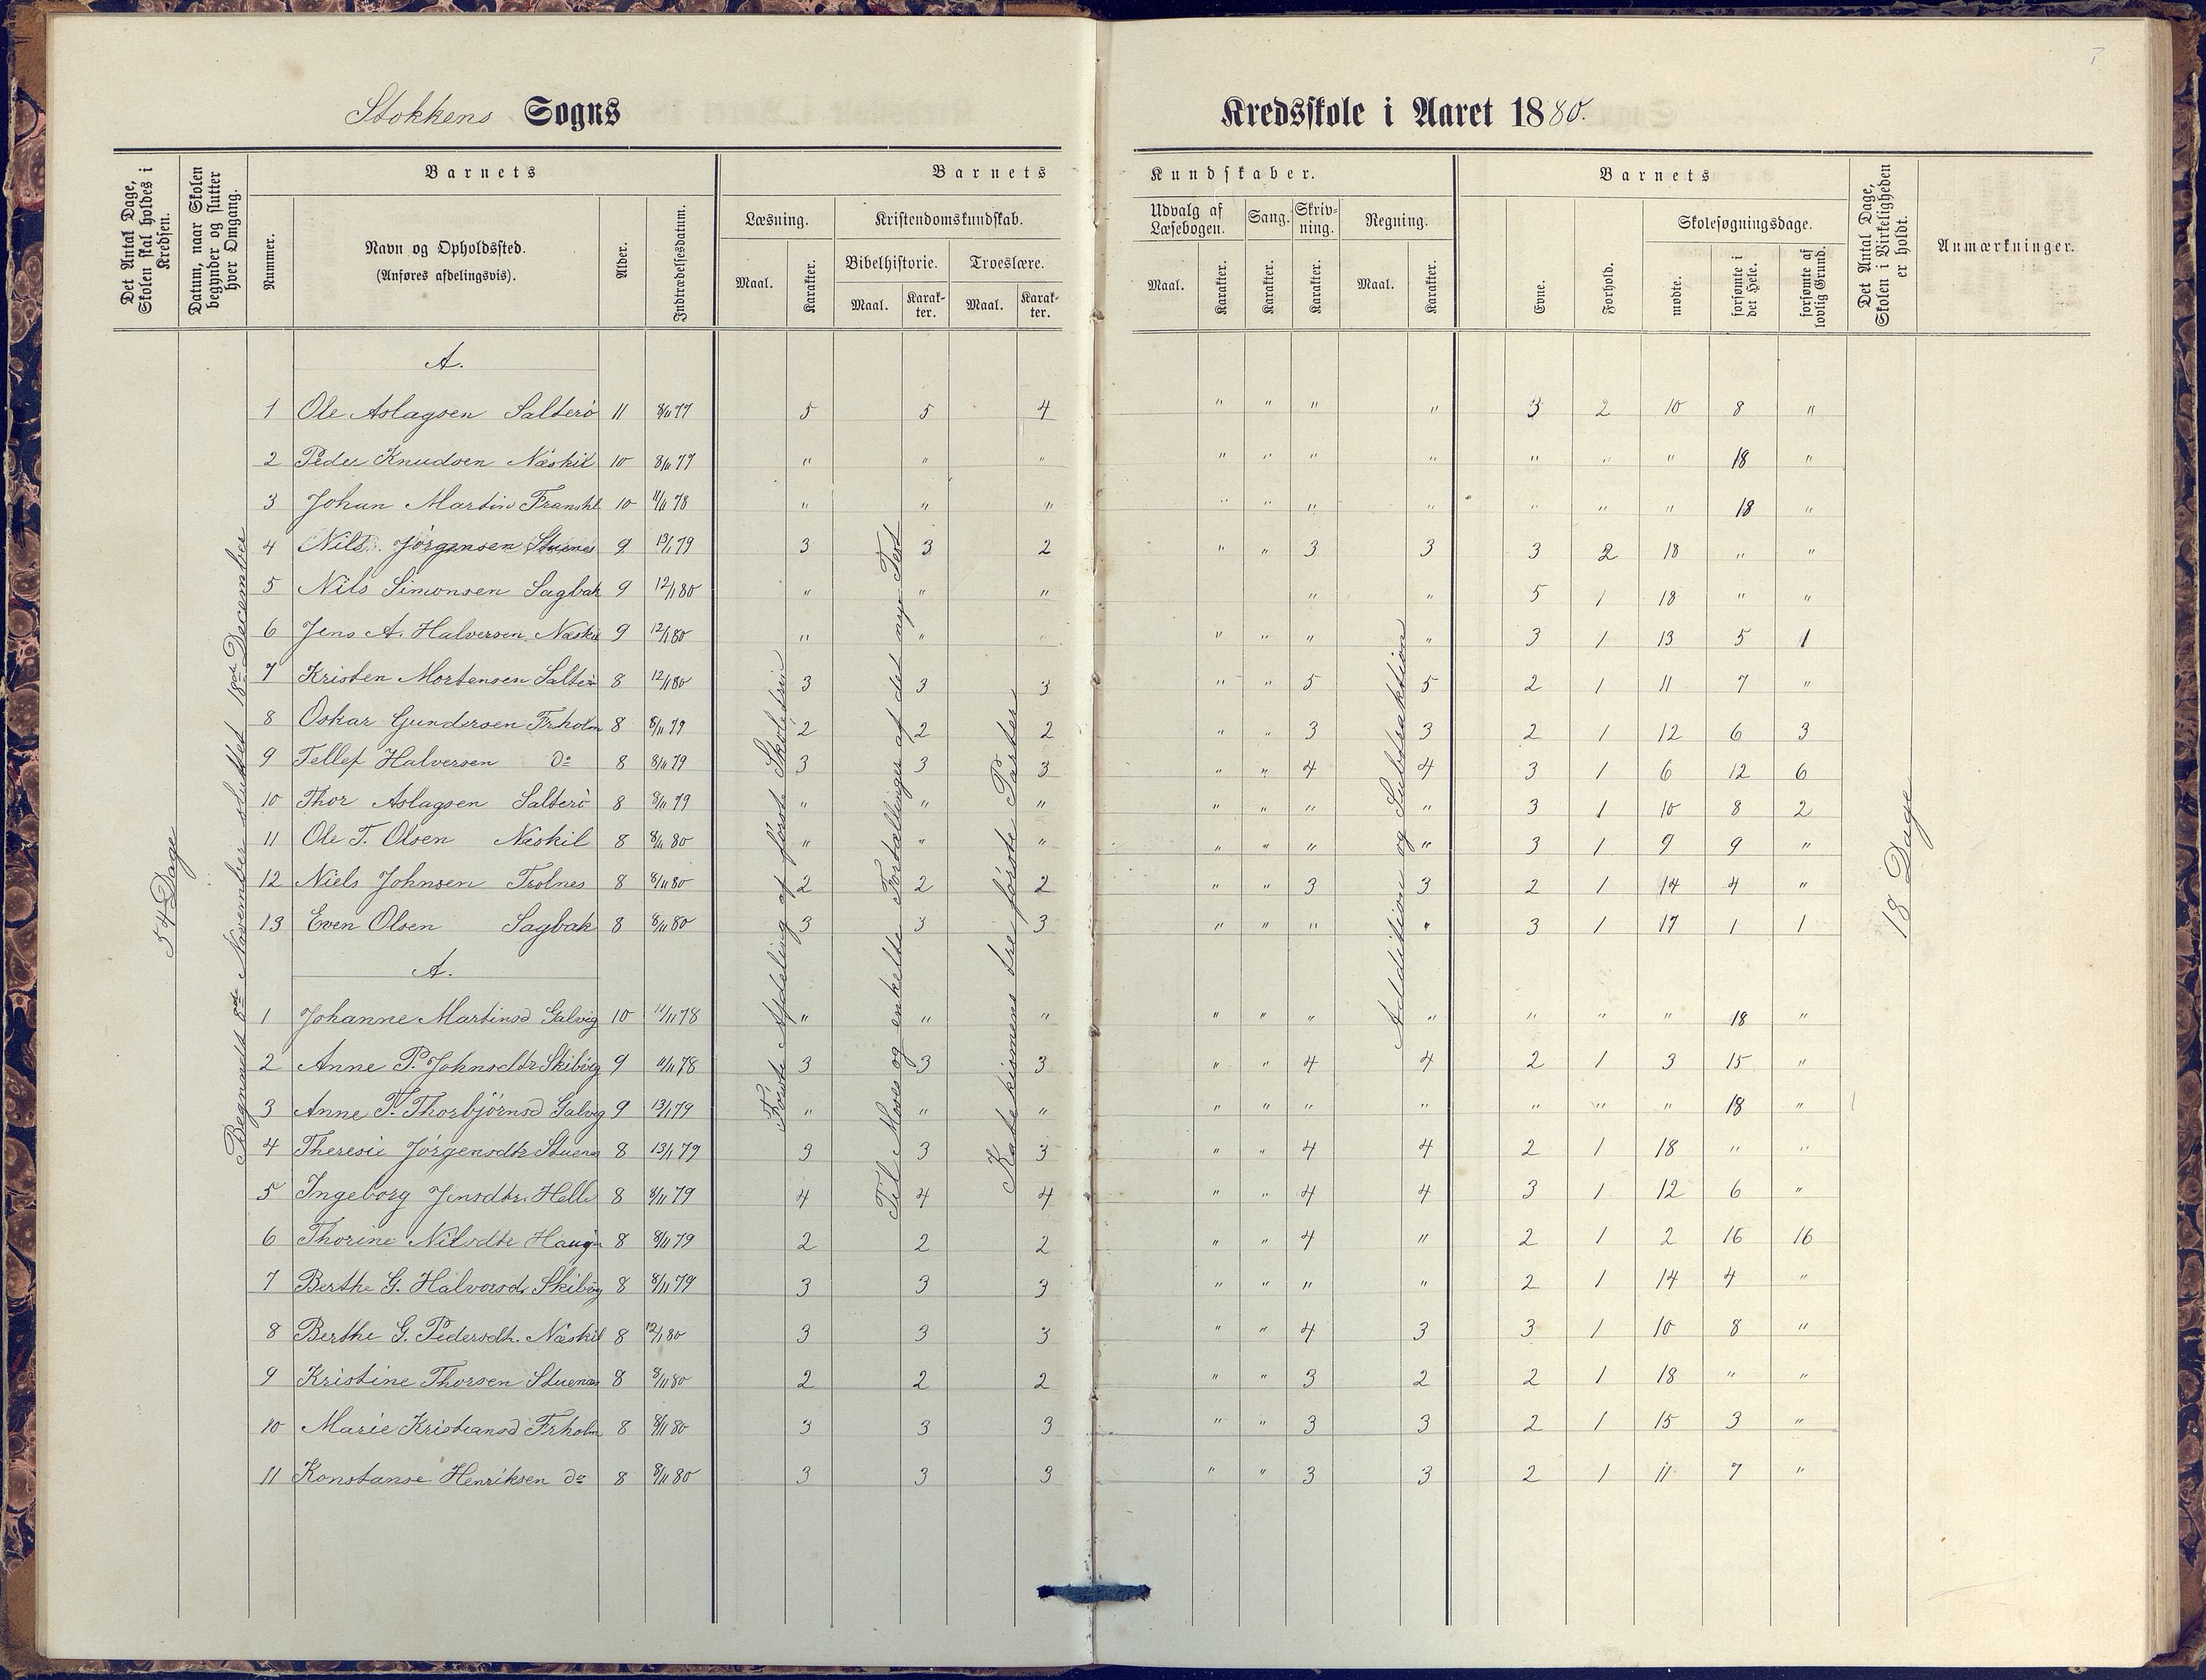 Stokkens Sogns Kredsskole i Aaret 1880.
Det Antal Dage, Skolen skal holdes i Kredsen.
Datum, naar Skolen begynder og slutter hver Omgang.
Barnets
Nummer.
Navn og Opholdssted.
(Anføres afdelingsvis).
Alder.
Indtrædelsesdatum.
Barnets Kundskaber.
Læsning.
Maal.
Karakter.
Kristendomskundskab.
Bibelhistorie.
Maal.
Karakter.
Troeslære.
Maal.
Karakter.
Udvalg af Læsebogen.
Maal.
Karakter.
Sang.
Karakter.
Skrivning.
Karakter.
Regning.
Maal.
Karakter.
Barnets
Evne.
Forhold.
Skolesøgningsdage.
mødte.
forsømte i det Hele.
forsømte af lovlig Grund.
Det Antal Dage, Skolen i Virkeligheden er holdt.
Anmærkninger.
54 Dage
Begyndt 8de November sluttet 18de December
Første Afdeling af første Skoletrin
Til Moses og enkelte Fortællinger af det nye Test
Katekismens tre første Parter
Addditition og Subtraktion
18 Dage
A.
1 Ole Aslagsen Salterö 11 8/11 77 5 5 4 " " " " 3 2 10 8 "
2 Peder Knudsen Næskil 10 8/11 77 " " " " " " " " " " 18 "
3 Johan Martin 10 11/11 78 " " " " " " " " " " 18 "
4 Nils Jörgensen Stuenes 9 13/1 79 3 3 2 " " 3 3 3 2 18 " "
5 Nils Simonsen Sagbak 9 12/1 80 " " " " " 5 1 18 " "
6 Jens A. Halversen Næskil 9 12/1 80 " " " " " " " 3 1 13 5 1
7 Kristen Mortensen Salterö 8 12/1 80 3 3 3 " " 5 5 2 1 11 7 "
8 Oskar Gundersen Frholm 8 8/11 79 2 2 2 " " 3 3 2 1 12 6 3
9 Tellef Halversen do 8 8/11 79 3 3 3 " " 4 4 3 1 6 12 6
10 Thor Aslagsen Salterö 8 8/11 79 " " " " " " " 3 1 10 8 2
11 Ole T. Olsen Næskil 8 8/11 80 " " " " " " " 3 1 9 9 "
12 Niels Johnsen Trolnes 8 8/11 80 2 2 2 " " 3 3 2 1 14 4 "
13 Even Olsen Sagbak 8 8/11 80 3 3 3 " " " " 3 1 17 1 1
A.
1 Johanne Martinsd Galvig 10 11/11 78 " " " " " " " " " " 18 "
2 Anne P. Johnsdtr Skibvig 9 11/11 78 3 3 3 " " 4 4 2 1 3 15 "
3 Anne T. Thorbjörnsd Galvig 9 13/1 79 " " " " " " " " " " 18 "
4 Theresie Jörgensdtr Stuenes 8 13/1 79 3 3 3 " " 4 4 2 1 18 " "
5 Ingeborg Jensdtr. Helle 8 8/11 79 4 4 4 " " 4 4 3 1 12 6 "
6 Thorine Nilsdtr 8 8/11 79 2 2 2 " " 4 " 2 1 2 16 16
7 Berthe G. Halvorsd. Skibvig 8 8/11 79 3 3 3 " " " " 2 1 14 4 "
8 Berthe G. Pedersdtr. Næskil 8 12/1 80 3 3 3 " " 4 3 3 1 10 8 "
9 Kristine Thorsen Stuenes 8 8/11 80 2 2 2 " " 3 2 2 1 18 " "
10 Marie Kristiansd Frholm 8 8/11 80 3 3 3 " " 3 3 2 1 15 3 "
11 Konstanse Henriksen do 8 8/11 80 3 3 3 " " 3 3 2 1 11 7 "